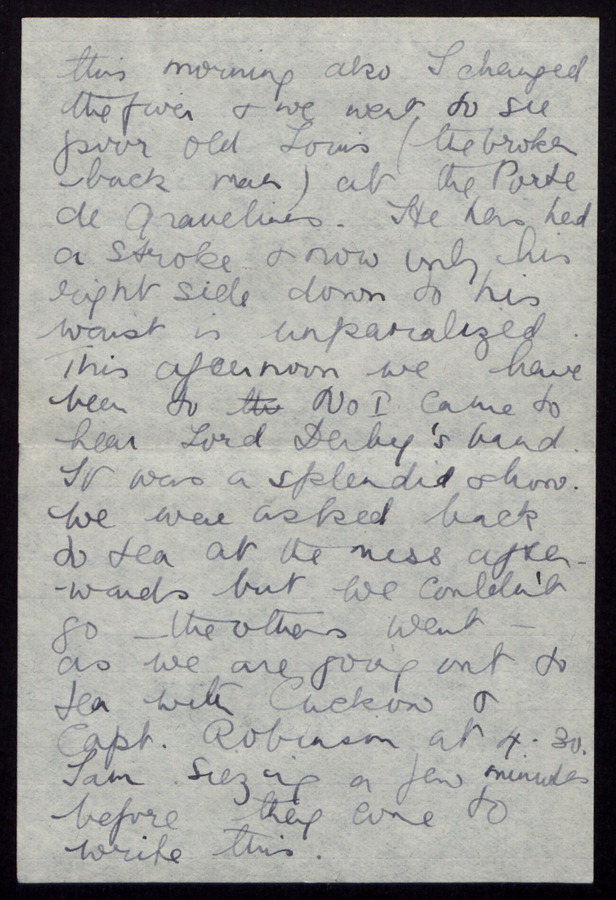 this morning also I changed
the fives & we went to see
poor old Louis (the broken
-back man) at the Porte
de Gravelines. He has had
a stroke & now only his
right side down to his
waist is unparalized.
This afternoon we have
been to the No I Came to
hear Lord Derby's band.
It was a splendid show.
We were asked back
to tea at the mess after-
wards but we couldn't
go – the others went –
as we are going out to
tea with Cuckow &
Capt. Robinson at 4.30.
I am siezing a few minutes
before they come to
write this.